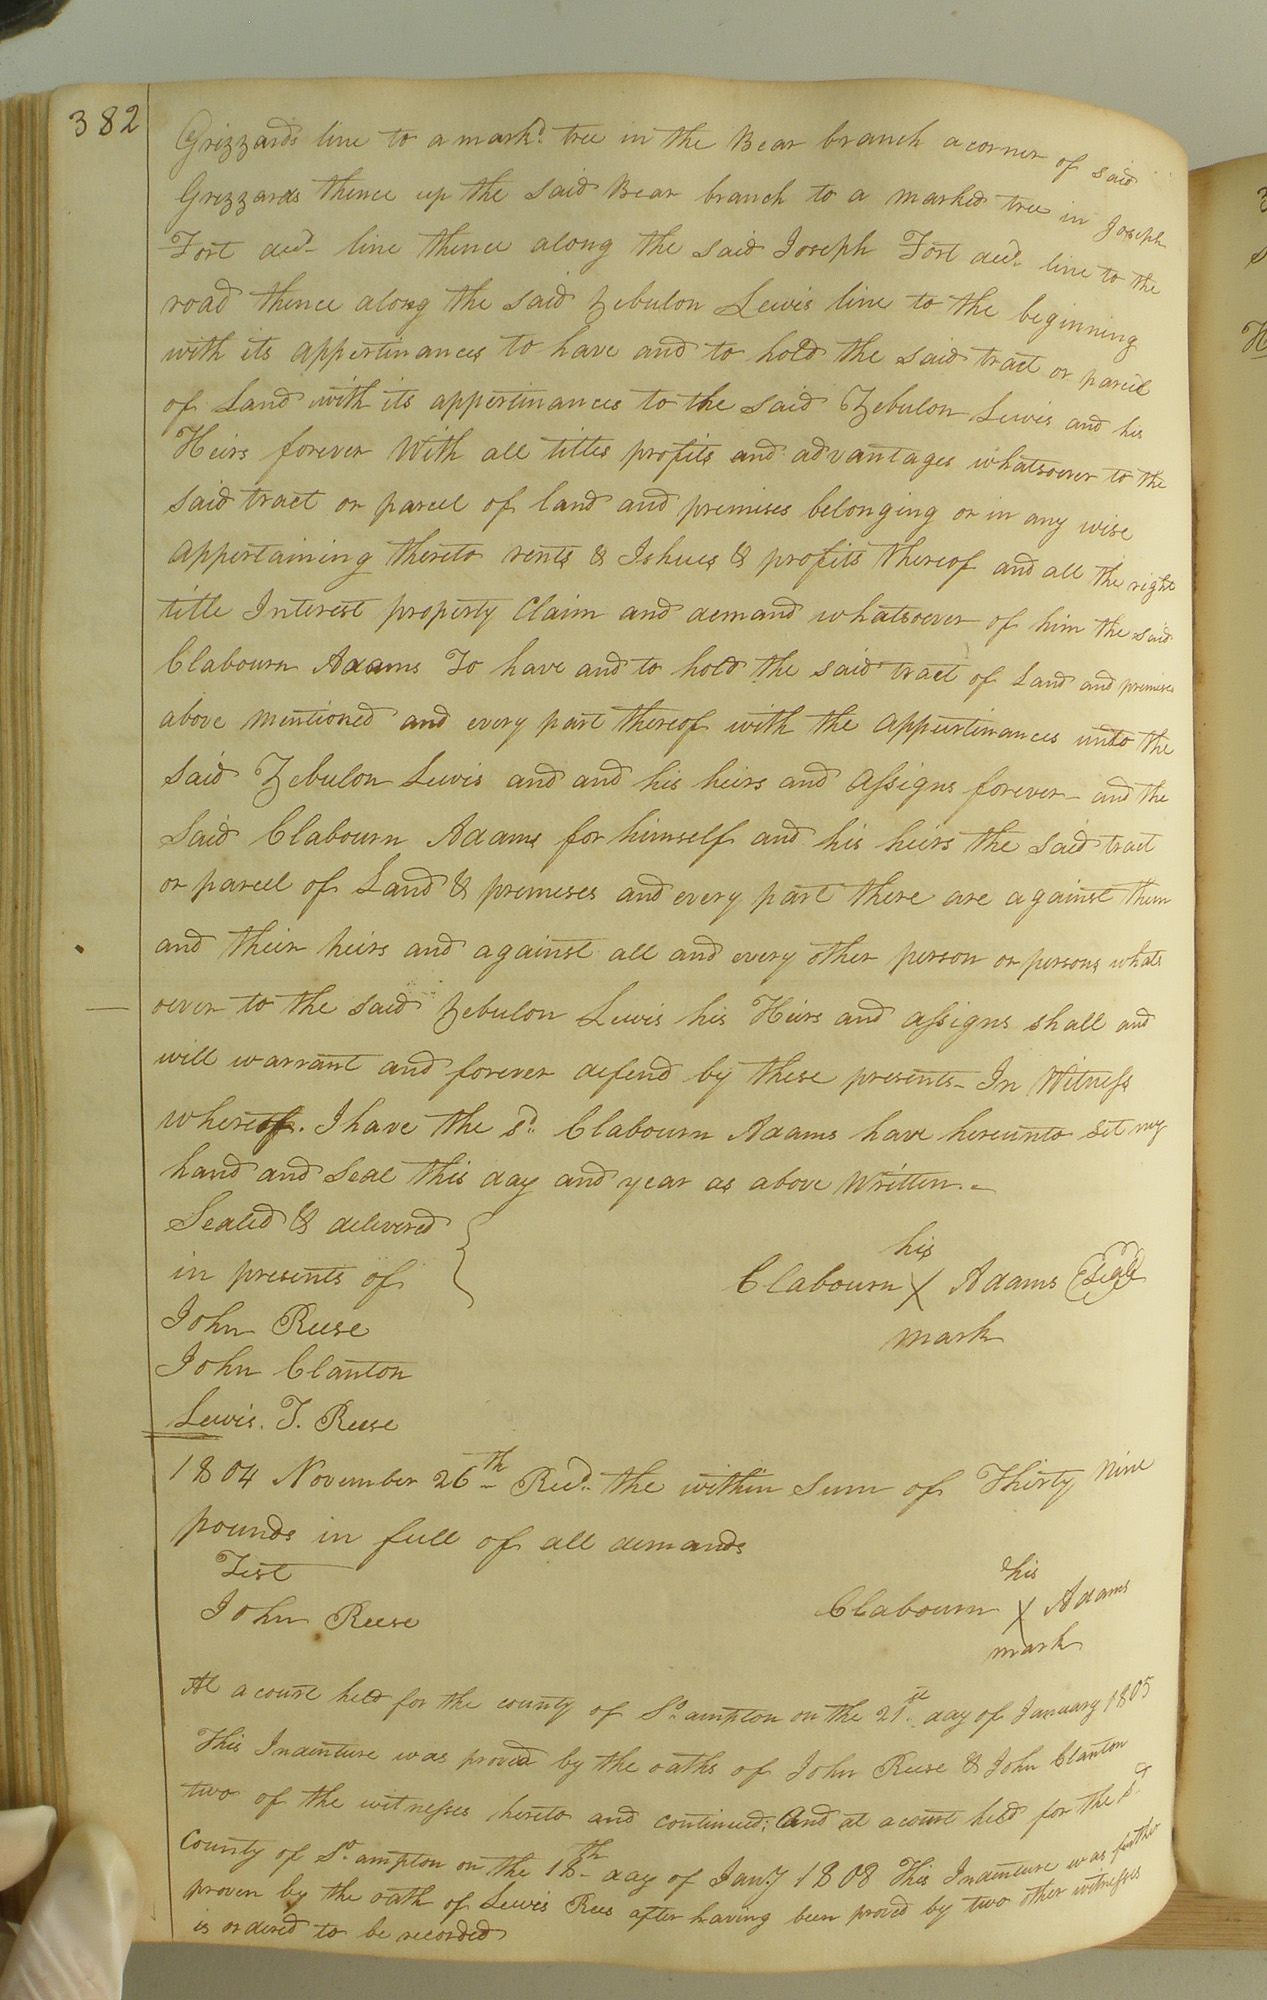 382
Grizzards line to a markd. tree in the Bear branch a corner of said
Grizzards thence up the said Bear branch to a marked tree in Joseph
Fort decd. line thence along the said Joseph Fort decd. line to the
road thence along the said Zebulon Lewis line to the beginning
with its appertinances to have and to hold the said tract or parcel
of Land with its appertinances to the said Zebulon Lewis and his
Heirs forever With all titles profits and advantages whatsoever to the
said tract or parcel of land and premises belonging or in any wise
appertaining thereto rents & Ishues & profits thereof and all the right
title Interest property Claim and demand whatsoever of him the said
Clabourn Adams To have and to hold the said tract of Land and premises
above mentioned and every part thereof with the appurtinances unto the
said Zebulon Lewis and and his heirs and assigns forever - and the
said Clabourn Adams for himself and his heirs the said tract
or parcel of Land & premeses and every part there are against them
and their heirs and against all and every other person or persons whats
oever to the said Zebulon Lewis his Heirs and assigns shall and
will warrant and forever defend by these presents - In Witness
whereof. I have the sd. Clabourn Adams have hereunto set my
hand and seal this day and year as above Written. -
Sealed & delivered
in presents of
his
Clabourn X Adams Seal
mark
John Reese
John Clanton
Lewis. T. Reese
1804 November 26th Recd. the within sum of Thirty nine
pounds in full of all demands
Test
John Reese
his
Clabourn X Adams
mark
At a court held for the county of So.ampton on the 21st. day of January 1805
This Indenture was proved by the oaths of John Reese & John Clanton
two of the witnesses hereto and continued; And at a court held for the sd.
County of So.ampton on the 18th day of Jany 1808 This Indenture was further
proven by the oath of Lewis Rees after having been proved by two other witnesses
is ordered to be recorded